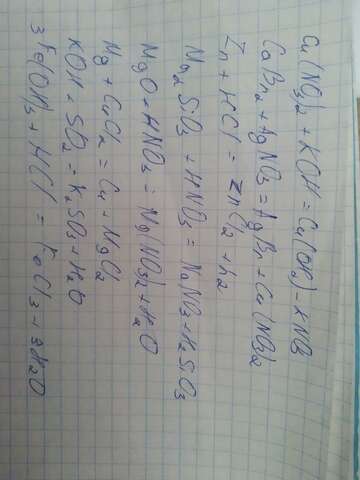 Cu(NO3)2 + KOH = Cu(OH2) - KNO3
CaBr2 + AgNO3 = AgBr + Ca(NO3)2
Zn + HCl = ZnCl2 + h2
Na2SiO3 + HNO3 = NaNO3 + H2SiO3
MgO + HNO3 = Mg(NO3)2 + H2O
Mg + CuCl2 = Cu + MgCl2
KOH + SO2 = K2SO3 + H2O
3 Fe(OH)3 + HCl = FeCl3 + 3H2O